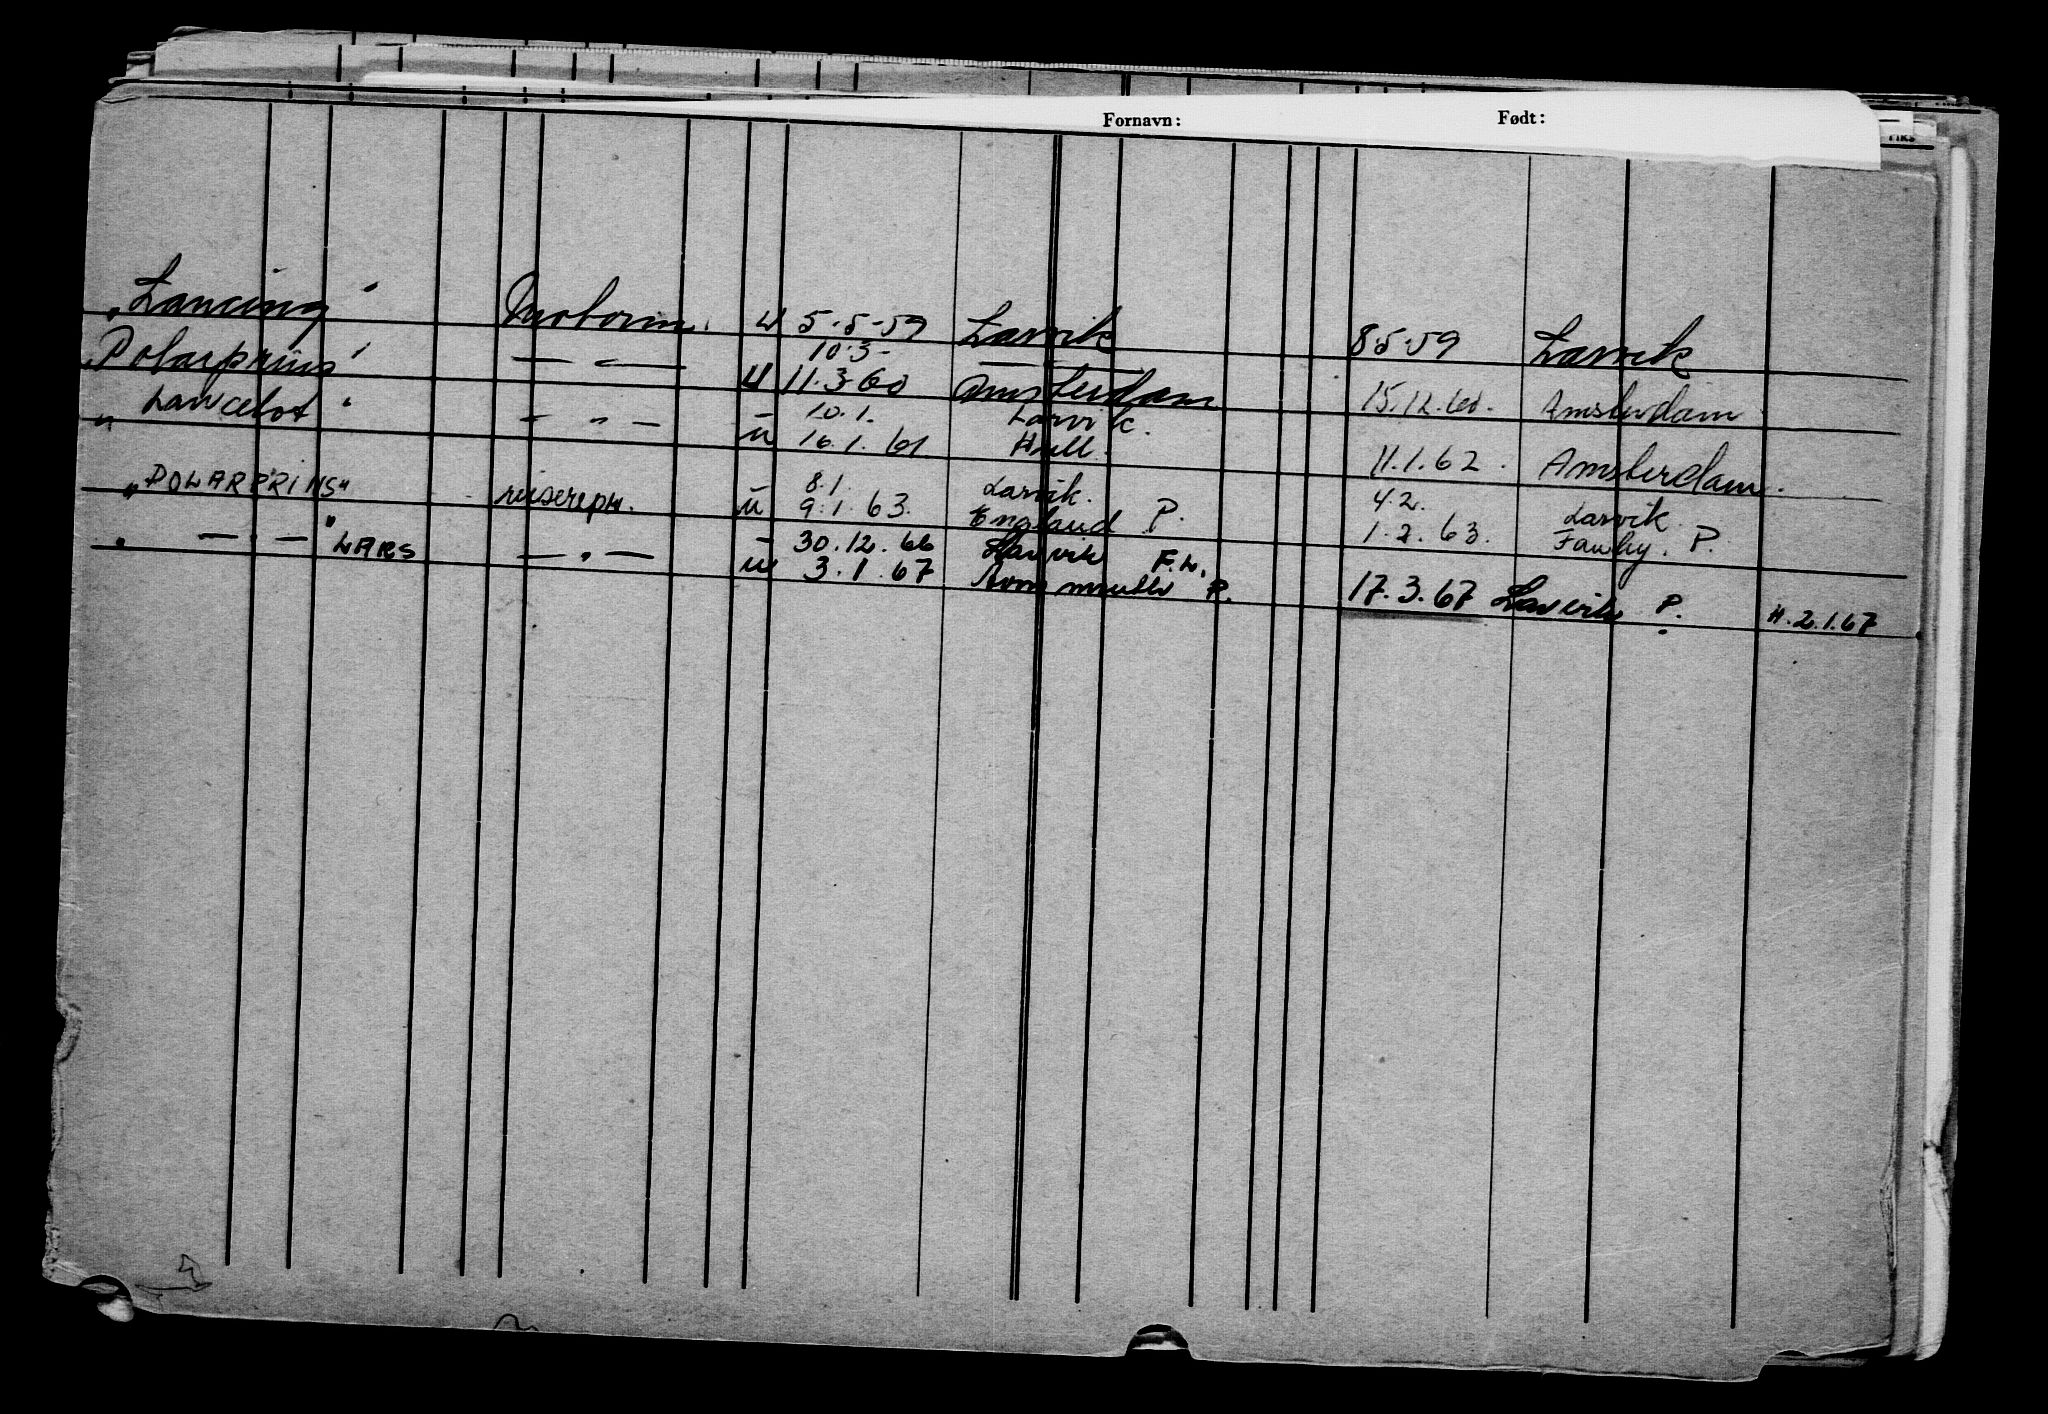 Fornavn: Født:
"Lancing" Motorm. U 5-5-59 Larvik 8-5-59 Larvik
10-3-
Polarprins" — " — U 11.3-60 Amsterdam 15.12.60. Amsterdam
— 10.1. Larvik.
"Lancelot" - " - U 16.1.61 Hull. 11.1.62. Amsterdam.
— 8.1. Larvik. 4.2. Larvik
"POLARPRINS" reiserepr. U 9.1.63. England P. 1.2.63. Fawley. P.
— 30.12.66 Larvik F.L.
" — " — " LARS — " — U 3.1.67 P. 17.3.67 Larvik P. H.2.1.67